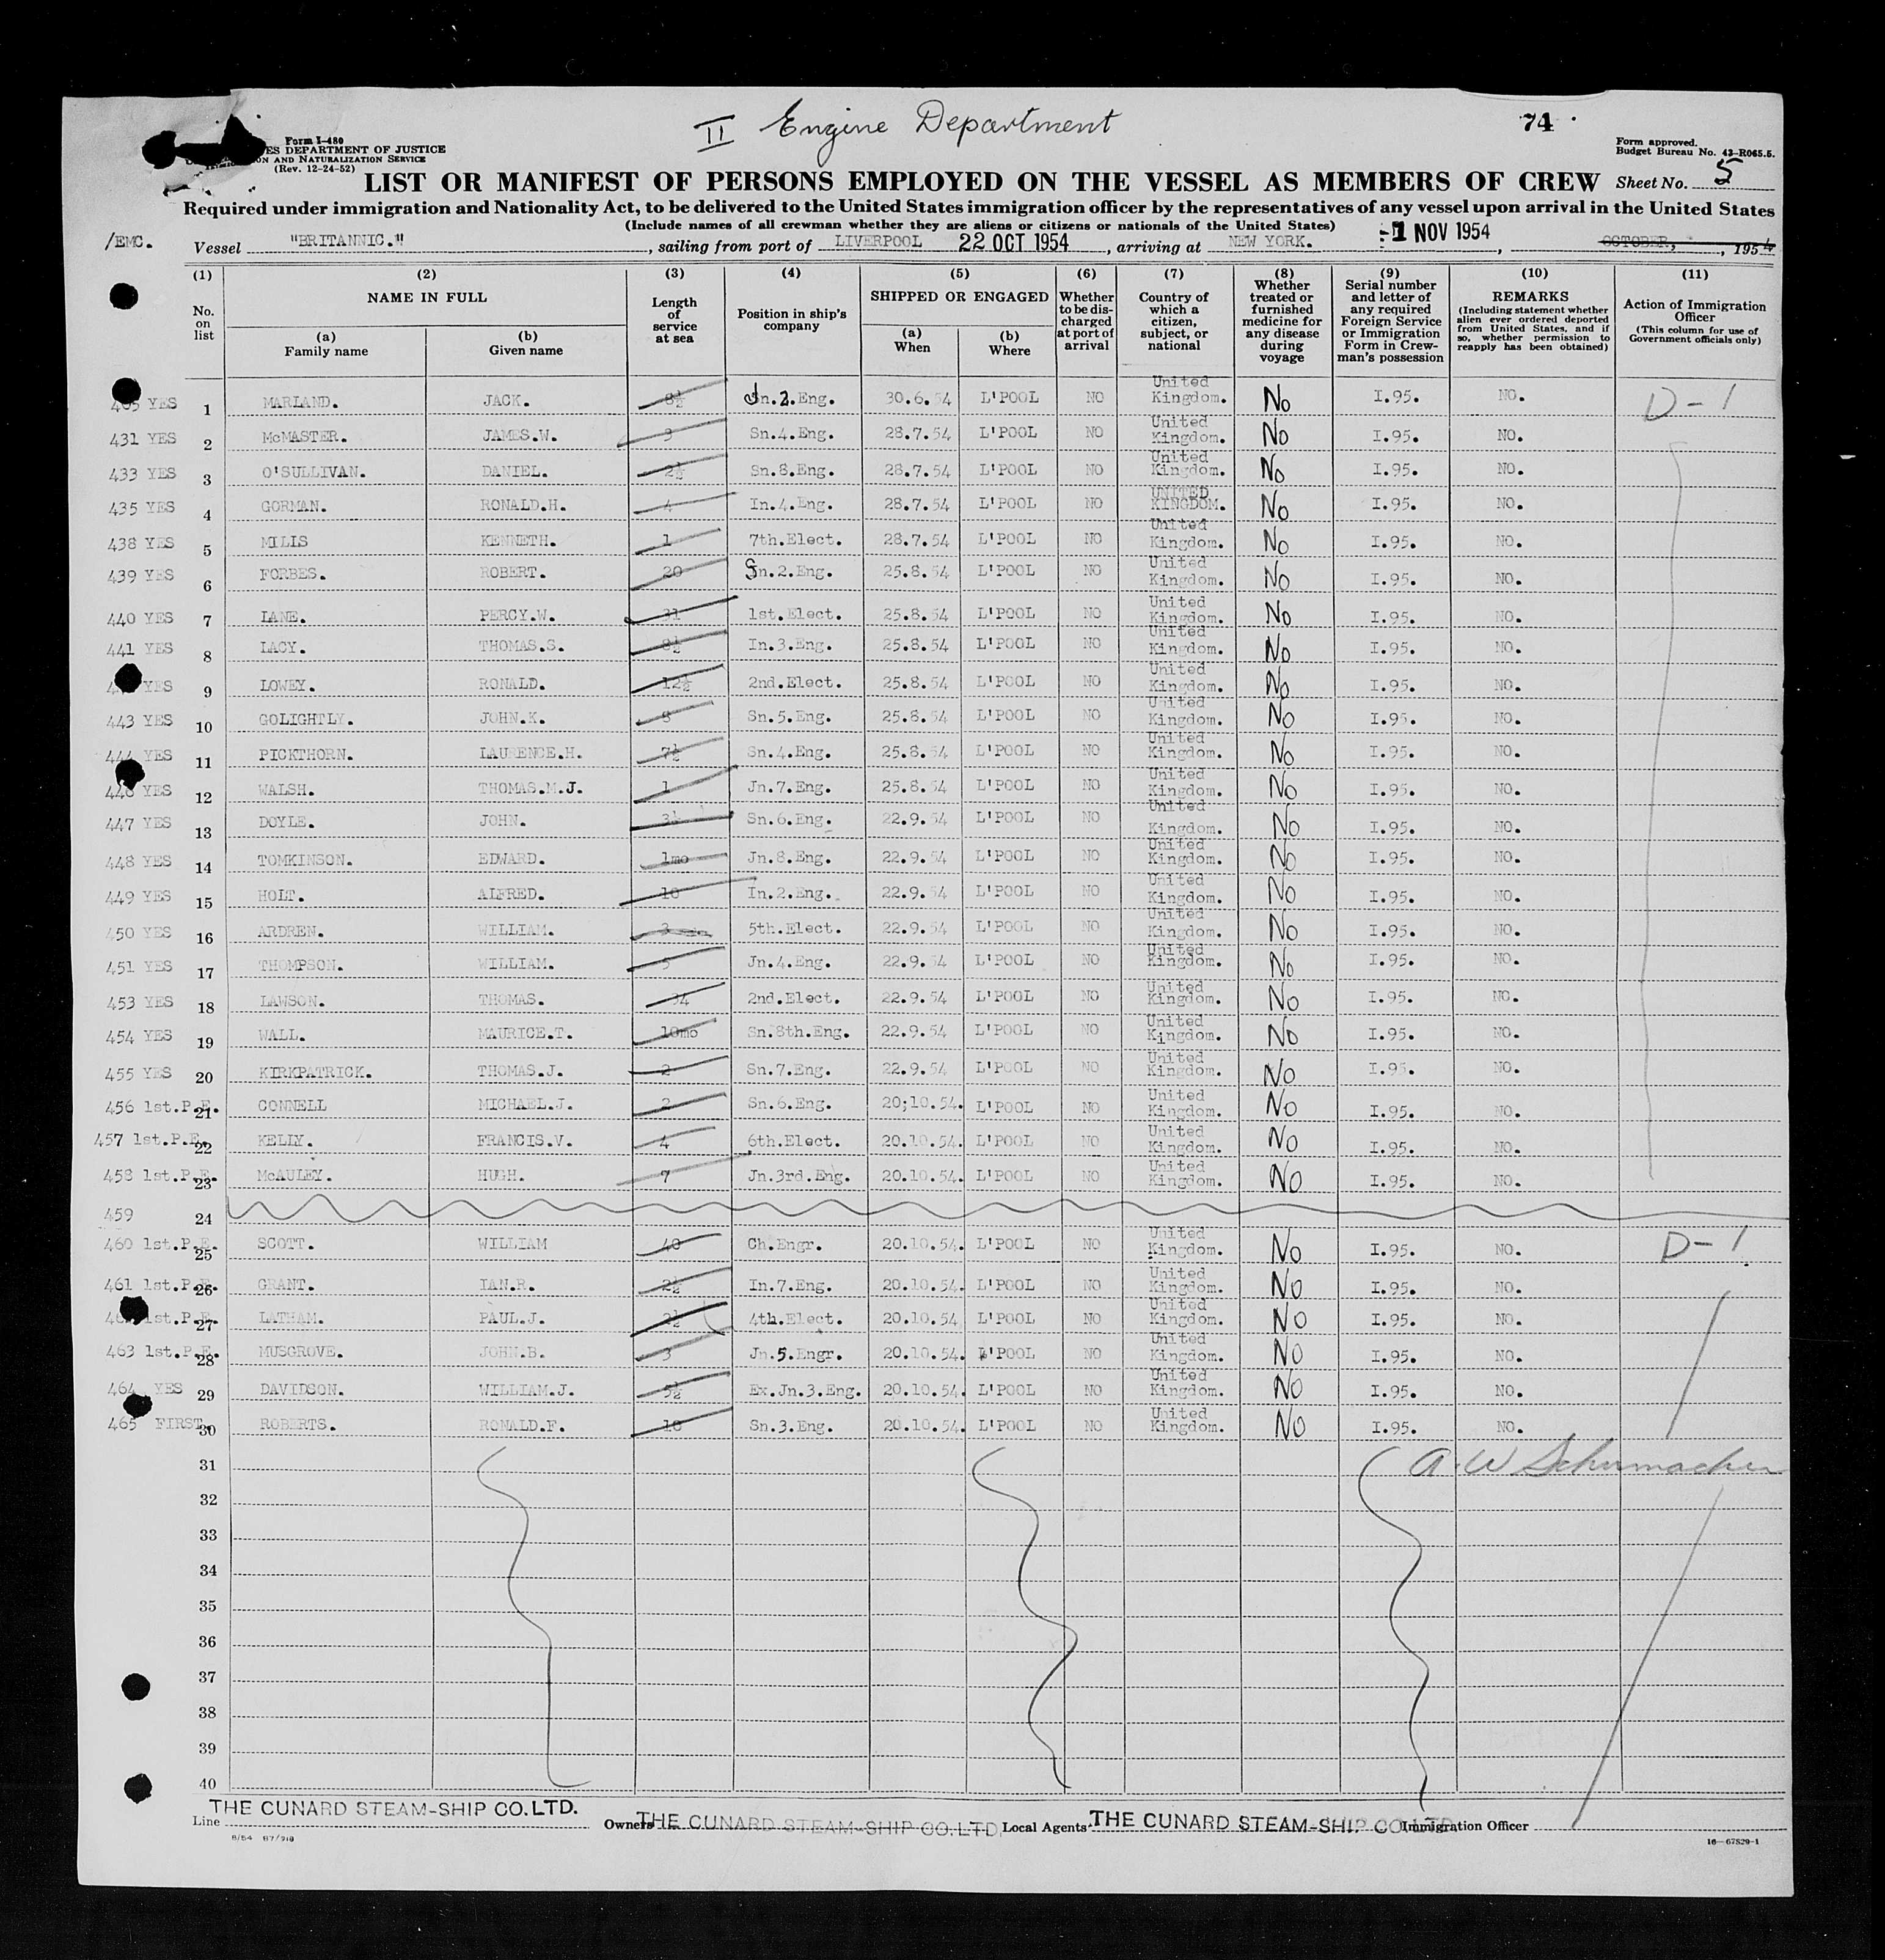 II Engine Department
74
Form I-480
ES DEPARTMENT OF JUSTICE
ON AND NATURALIZATION SERVICE
(Rev. 12-24-52)
Form approved.
Budget Bureau No. 43-R065.5.
LIST OR MANIFEST OF PERSONS EMPLOYED ON THE VESSEL AS MEMBERS OF CREW
Sheet No. 5
Required under immigration and Nationality Act, to be delivered to the United States immigration officer by the representatives of any vessel upon arrival in the United States
(Include names of all crewman whether they are aliens or citizens or nationals of the United States)
/EMC. Vessel "BRITANNIC." , sailing from port of LIVERPOOL 22 OCT 1954 , arriving at NEW YORK. -1 NOV 1954 , OCTOBER, , 1954
(1) (2) (3) (4) (5) (6) (7) (8) (9) (10) (11)
No. on list
NAME IN FULL
(a) Family name
(b) Given name
Length of service at sea
Position in ship's company
SHIPPED OR ENGAGED
(a) When
(b) Where
Whether to be discharged at port of arrival
Country of which a citizen, subject, or national
Whether treated or furnished medicine for any disease during voyage
Serial number and letter of any required Foreign Service or Immigration Form in Crewman's possession
REMARKS
(Including statement whether alien ever ordered deported from United States, and if so, whether permission to reapply has been obtained)
Action of Immigration Officer
(This column for use of Government officials only)
405 YES 1 MARLAND. JACK. 8½ Jn.2.Eng. 30.6.54 L'POOL NO United Kingdom. No I.95. NO. D-1
431 YES 2 McMASTER. JAMES.W. 3 Sn.4.Eng. 28.7.54 L'POOL NO United Kingdom. No I.95. NO.
433 YES 3 O'SULLIVAN. DANIEL. 2½ Sn.8.Eng. 28.7.54 L'POOL NO United Kingdom. No I.95. NO.
435 YES 4 GORMAN. RONALD.H. 4 In.4.Eng. 28.7.54 L'POOL NO UNITED KINGDOM. No I.95. NO.
438 YES 5 MILIS KENNETH. 1 7th.Elect. 28.7.54 L'POOL NO United Kingdom. No I.95. NO.
439 YES 6 FORBES. ROBERT. 20 Sn.2.Eng. 25.8.54 L'POOL NO United Kingdom. No I.95. NO.
440 YES 7 LANE. PERCY.W. 31 1st.Elect. 25.8.54 L'POOL NO United Kingdom. No I.95. NO.
441 YES 8 LACY. THOMAS.S. 8½ In.3.Eng. 25.8.54 L'POOL NO United Kingdom. No I.95. NO.
YES 9 LOWEY. RONALD. 12½ 2nd.Elect. 25.8.54 L'POOL NO United Kingdom. No I.95. NO.
443 YES 10 GOLIGHTLY. JOHN.K. 8 Sn.5.Eng. 25.8.54 L'POOL NO United Kingdom. No I.95. NO.
444 YES 11 PICKTHORN. LAURENCE.H. 7½ Sn.4.Eng. 25.8.54 L'POOL NO United Kingdom. No I.95. NO.
446 YES 12 WALSH. THOMAS.M.J. 1 Jn.7.Eng. 25.8.54 L'POOL NO United Kingdom. No I.95. NO.
447 YES 13 DOYLE. JOHN. 3½ Sn.6.Eng. 22.9.54 L'POOL NO United Kingdom. No I.95. NO.
448 YES 14 TOMKINSON. EDWARD. 1mo Jn.8.Eng. 22.9.54 L'POOL NO United Kingdom. No I.95. NO.
449 YES 15 HOLT. ALFRED. 10 In.2.Eng. 22.9.54 L'POOL NO United Kingdom. No I.95. NO.
450 YES 16 ARDREN. WILLIAM. 3 5th.Elect. 22.9.54 L'POOL NO United Kingdom. No I.95. NO.
451 YES 17 THOMPSON. WILLIAM. 5 Jn.4.Eng. 22.9.54 L'POOL NO United Kingdom. No I.95. NO.
453 YES 18 LAWSON. THOMAS. 34 2nd.Elect. 22.9.54 L'POOL NO United Kingdom. No I.95. NO.
454 YES 19 WALL. MAURICE.T. 10mo Sn.8th.Eng. 22.9.54 L'POOL NO United Kingdom. No I.95. NO.
455 YES 20 KIRKPATRICK. THOMAS.J. 2 Sn.7.Eng. 22.9.54 L'POOL NO United Kingdom. No I.95. NO.
456 1st.P.E. 21 CONNELL MICHAEL.J. 2 Sn.6.Eng. 20;10.54. L'POOL NO United Kingdom. No I.95. NO.
457 1st.P.E. 22 KELLY. FRANCIS.V. 4 6th.Elect. 20.10.54. L'POOL NO United Kingdom. No I.95. NO.
458 1st.P.E. 23 McAULEY. HUGH. 7 Jn.3rd.Eng. 20.10.54. L'POOL NO United Kingdom. No I.95. NO.
459 24
460 1st.P.E. 25 SCOTT. WILLIAM 40 Ch.Engr. 20.10.54. L'POOL NO United Kingdom. No I.95. NO. D-1
461 1st.P.E. 26 GRANT. IAN.R. 2½ In.7.Eng. 20.10.54. L'POOL NO United Kingdom. No I.95. NO.
1st.P.E. 27 LATHAM. PAUL.J. 2½ 4th.Elect. 20.10.54 L'POOL NO United Kingdom. No I.95. NO.
463 1st.P.E. 28 MUSGROVE. JOHN.B. 3 Jn.5.Engr. 20.10.54. L'POOL NO United Kingdom. No I.95. NO.
464 YES 29 DAVIDSON. WILLIAM.J. 5½ Ex.Jn.3.Eng. 20.10.54. L'POOL NO United Kingdom. No I.95. NO.
465 FIRST. 30 ROBERTS. RONALD.F. 10 Sn.3.Eng. 20.10.54. L'POOL NO United Kingdom. No I.95. NO.
31 A. W Schumacher
32
33
34
35
36
37
38
39
40
Line THE CUNARD STEAM-SHIP CO.LTD. Owners THE CUNARD STEAM-SHIP CO.LTD. Local Agents THE CUNARD STEAM-SHIP CO LTD Immigration Officer
8/54 67/918
16-67829-1